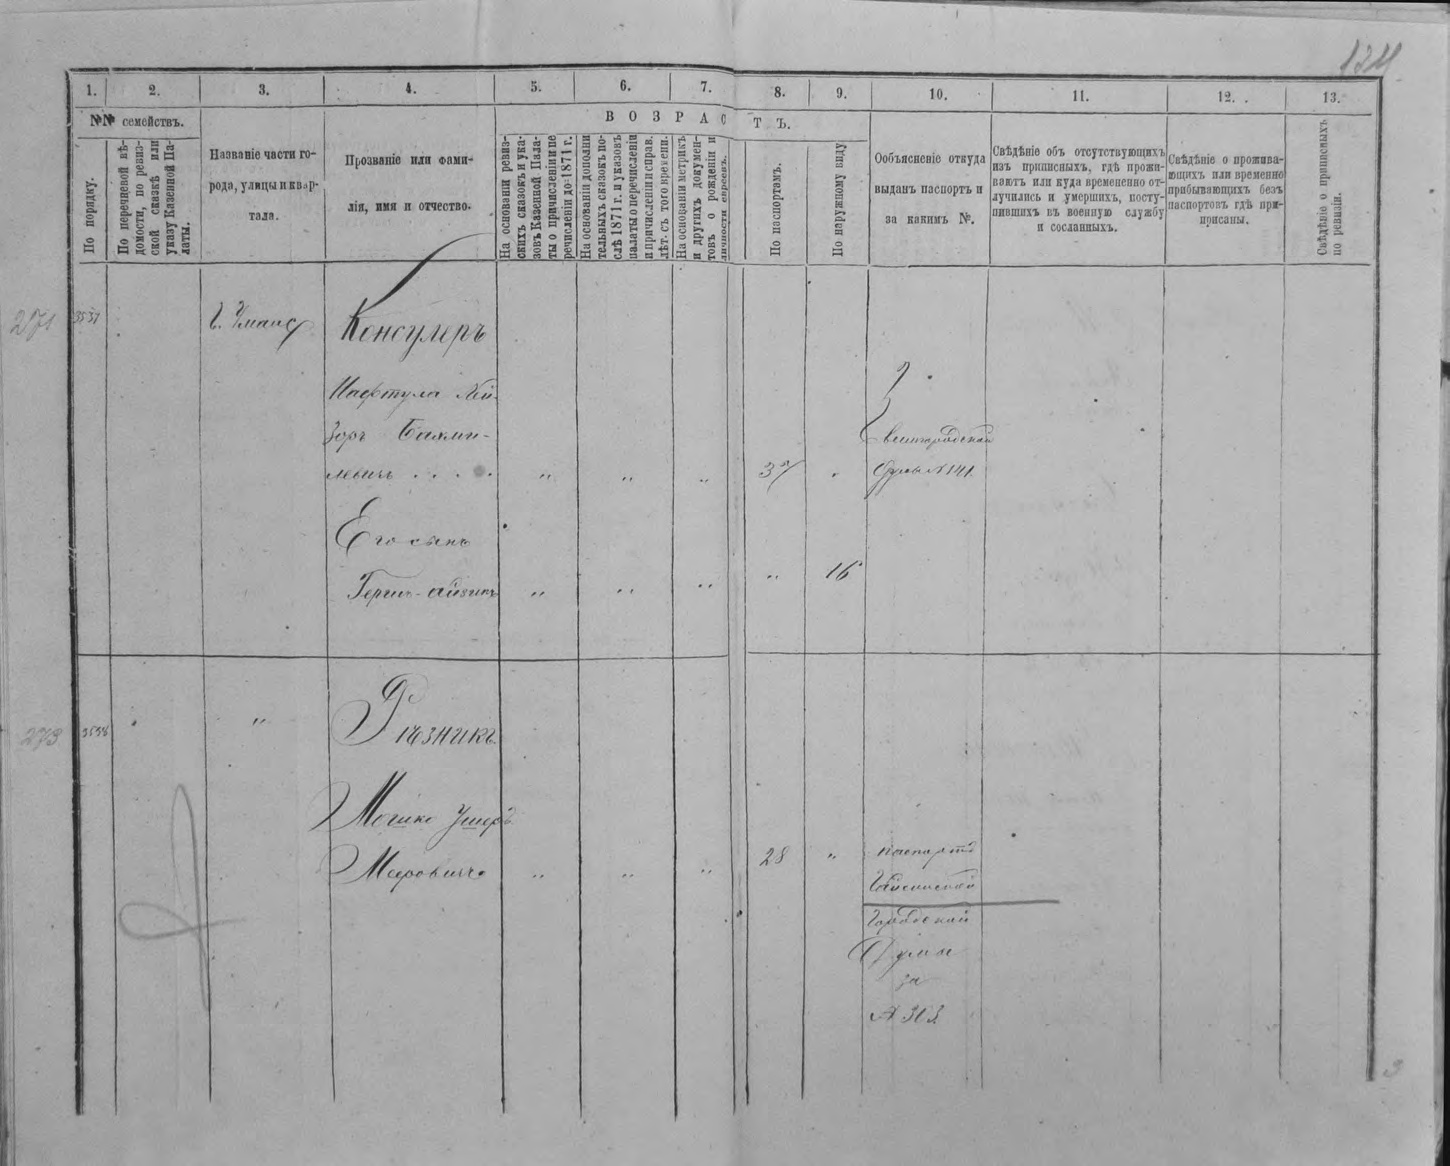 134
1. 2. 3. 4. 5. 6. 7. 8. 9. 10. 11. 12. 13.
№№ семействъ.
В О З Р А С Т Ъ.
По порядку.
По перечневой вѣ-
домости, по ревиз-
ской сказкѣ или
указу Казенной Па-
латы.
Названіе части го-
рода, улицы и квар-
тала.
Прозваніе или фами-
лія, имя и отчество.
На основаніи ревиз-
скихъ сказокъ и ука-
зовъ Казенной Пала-
ты о причисленіи и пе
речисленіи до 1871 г.
На основаніи дополни
тельныхъ сказокъ по-
слѣ 1871 г. и указовъ
палаты о перечисленіи
и причисленіи и справ.
лѣт. съ того времени.
На основаніи метрикъ
и другихъ докумен-
товъ о рожденіи и
личности евреевъ.
По паспортамъ.
По наружному виду
Ообъясненіе откуда
выданъ паспортъ и
за какимъ №.
Свѣдѣніе объ отсутствующихъ
изъ приписныхъ, гдѣ прожи-
ваютъ или куда временно от-
лучились и умершихъ, посту-
пившихъ въ военную службу
и сосланныхъ.
Свѣдѣніе о прожива-
ющихъ или временно
прибывающихъ безъ
паспортовъ гдѣ при-
писаны.
Свѣдѣніе о приписныхъ
по ревизіи.
271 3537 Консулеръ
Нафтула Лей-
зоръ
левичъ . . . . „ „ „ 37 „ Думы № 141.
Его сынъ
„ „ „ „ 16
273 3538 „ Рѣзникъ
Мошко Ушеръ
Мееровичъ „ „ „ 28 „ паспортъ
Гайсинской
Городской
Думы
за
№ 313.